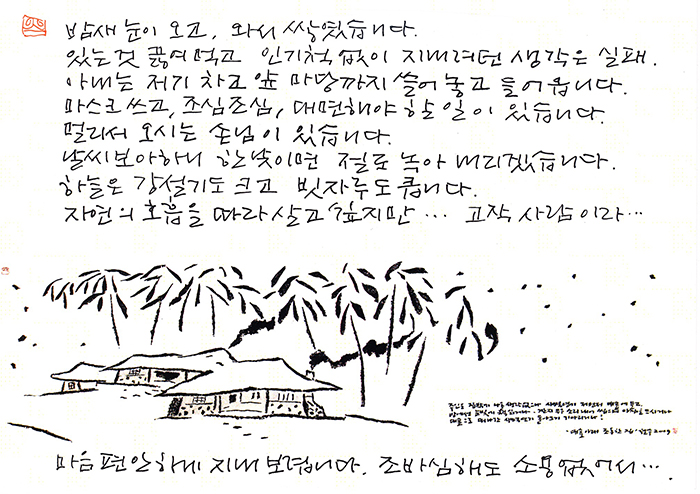 밤새 눈이 오고, 와서 쌓였습니다.
있는것 끓여먹고 인기척 없이 지내려던 생각은 실패.
아내는 저기 차고 앞 마당까지 쓸어 놓고 들어옵니다.
마스크 쓰고, 조심조심, 대면해야 할 일이 있습니다.
멀리서 오시는 손님이 있습니다.
날씨보아하니 한낮이면 절로 녹아 내리겠습니다.
하늘은 강설기도 크고 빗자루도 큽니다.
자연의 호흡을 따라 살고 싶지만··· 고작 사람이라···
마음 편안하게 지내 보렵니다. 조바심해도 소용없어서···